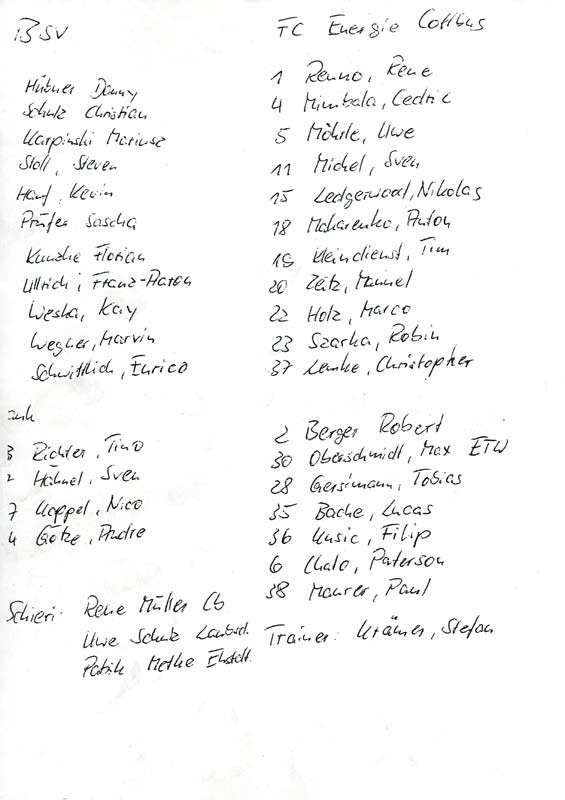 BSV
Hübner Danny
Schulz Christian
Karpinski Mariusz
Stoll, Steven
Hanf, Kevin
Prüfer Sascha
Kunzke Florian
Ullrich, Franz-Aaron
Weska, Kay
Wegner, Marvin
Schwittlich, Enrico
3 Richter, Tino
2 Hähnel, Sven
7 Koppel, Nico
4 Götze, Andre
Schieri: Rene Müller Cb
Uwe Schulz
Patrik Methe
FC Energie Cottbus
1 Renno, Rene
4 Mimbala, Cedric
5 Möhrle, Uwe
11 Michel, Sven
15 Ledgerwood, Nikolas
18 Makarenko, Anton
19 Kleindienst, Tim
20 Zeitz, Manuel
22 Holz, Marco
23 Szarka, Robin
37 Lemke, Christopher
2 Berger Robert
30 Oberschmidt, Max ETW
28 Gersimann, Tobias
35 Bache, Lucas
36 Kusic, Filip
6 Chato, Paterson
38 Maurer, Paul
Trainer: Krämer, Stefan